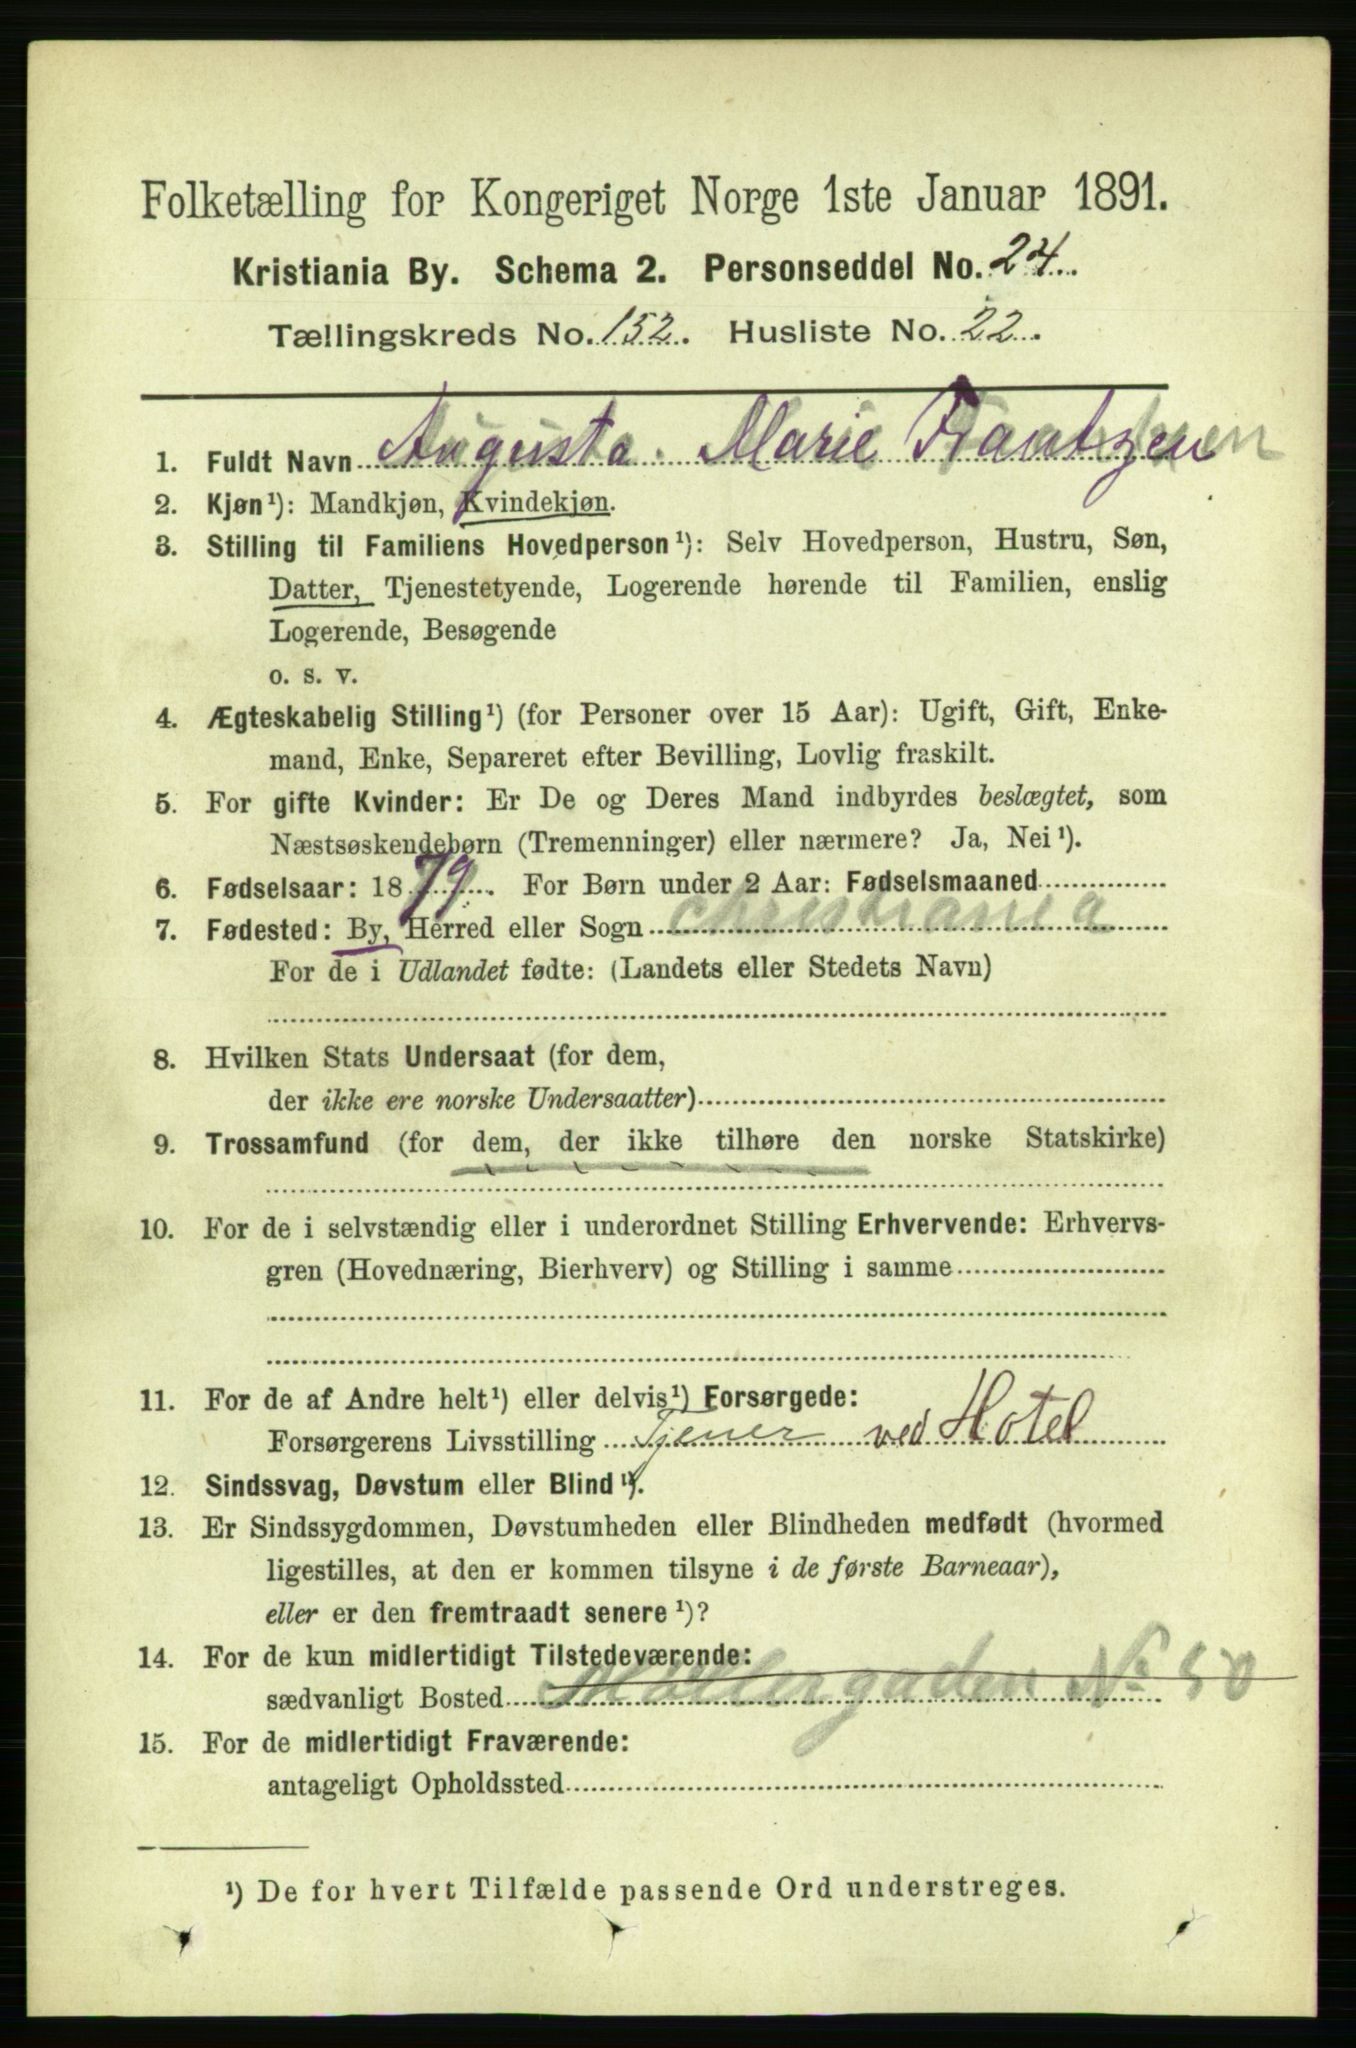 Folketælling for Kongeriget Norge 1ste Januar 1891.
Kristiania By. Schema 2. Personseddel No. 24.
Tællingskreds No. 152. Husliste No. 22.
1. Fuldt Navn Augusta Marie Frantzen
2. Kjøn¹): Mandkjøn, Kvindekjøn.
3. Stilling til Familiens Hovedperson¹): Selv Hovedperson, Hustru, Søn,
Datter, Tjenestetyende, Logerende hørende til Familien, enslig
Logerende, Besøgende
o. s. v.
4. Ægteskabelig Stilling¹) (for Personer over 15 Aar): Ugift, Gift, Enke-
mand, Enke, Separeret efter Bevilling, Lovlig fraskilt.
5. For gifte Kvinder: Er De og Deres Mand indbyrdes beslægtet, som
Næstsøskendebørn (Tremenninger) eller nærmere? Ja, Nei¹).
6. Fødselsaar: 1879. For Børn under 2 Aar: Fødselsmaaned
7. Fødested: By, Herred eller Sogn christiania
For de i Udlandet fødte: (Landets eller Stedets Navn)
8. Hvilken Stats Undersaat (for dem,
der ikke ere norske Undersaatter)
9. Trossamfund (for dem, der ikke tilhøre den norske Statskirke)
10. For de i selvstændig eller i underordnet Stilling Erhvervende: Erhvervs-
gren (Hovednæring, Bierhverv) og Stilling i samme
11. For de af Andre helt¹) eller delvis¹) Forsørgede:
Forsørgerens Livsstilling Tjener ved Hotel
12. Sindssvag, Døvstum eller Blind¹).
13. Er Sindssygdommen, Døvstumheden eller Blindheden medfødt (hvormed
ligestilles, at den er kommen tilsyne i de første Barneaar),
eller er den fremtraadt senere¹)?
14. For de kun midlertidigt Tilstedeværende:
sædvanligt Bosted Möllergaden No 50
15. For de midlertidigt Fraværende:
antageligt Opholdssted
¹) De for hvert Tilfælde passende Ord understreges.